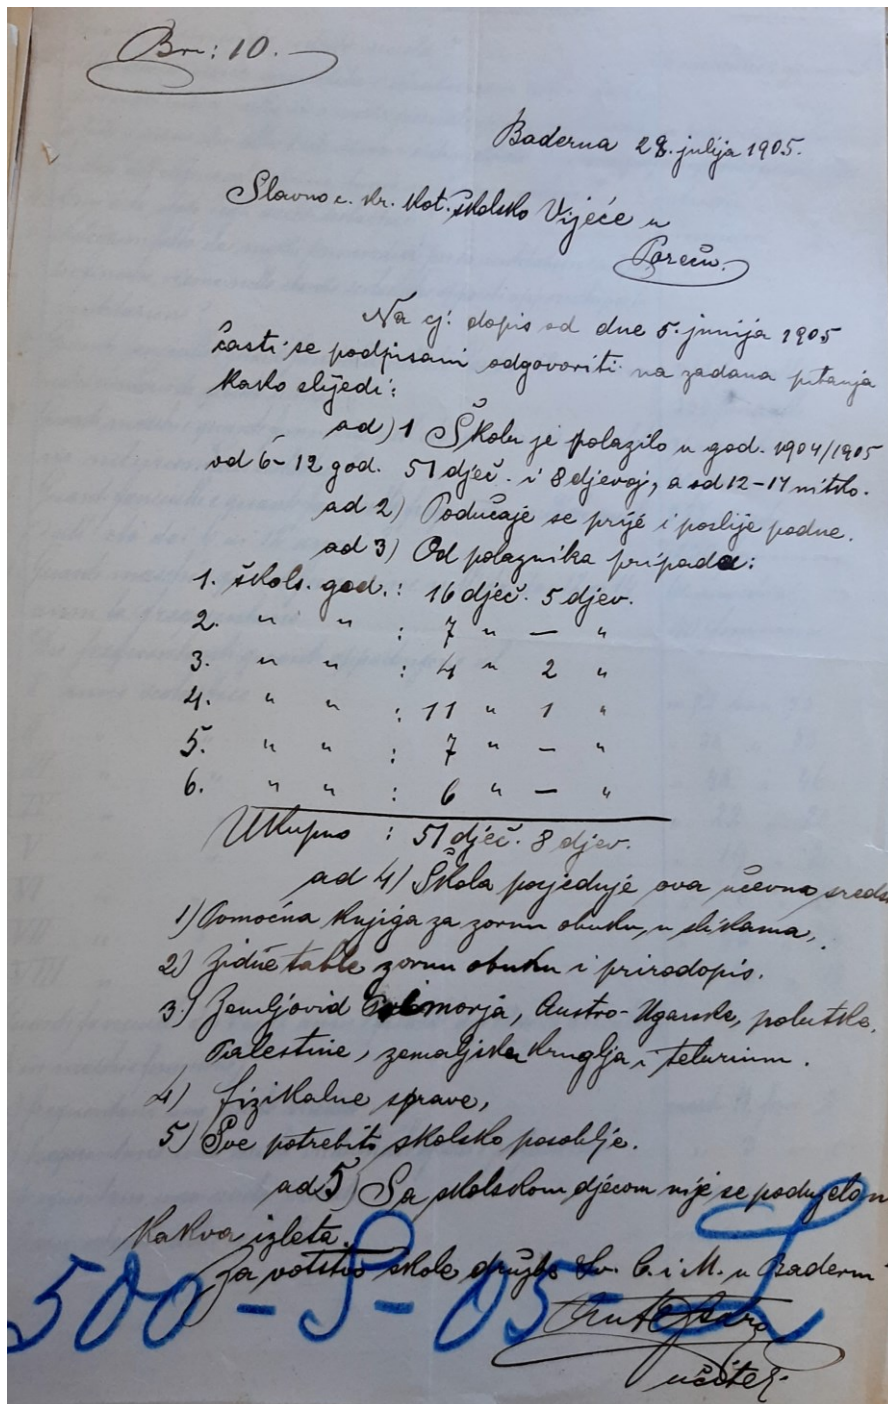 Br: 10.
Baderna 28. julija 1905.
Slavno c. kr. kot. školsko Vijeće u
Poreču.
Na cj. dopis od dne 5. junija 1905
časti se podpisani odgovoriti na zadana pitanja
kako slijedi:
ad) 1 Školu je polazilo u god. 1904/1905
od 6-12 god. 51 dječ. i 8 djevoj, a od 12-14 nitko.
ad 2) Podučaje se prije i poslije podne.
ad 3) Od polaznika pripada:
1. škols. god.: 16 dječ. 5 djev.
2. " " : 7 " — "
3. " " : 4 " 2 "
4. " " : 11 " 1 "
5. " " : 7 " — "
6. " " : 6 " — "
Ukupno : 51 dječ. 8 djev.
ad 4) Škola posjeduje ova učevna sreds
1) Pomoćna knjiga za zornu obuku, u slikama,
2) Zidne table zornu obuku i prirodopis.
3) Zemljovid Primorja, Austro-Ugarske, polutska,
Palestine, zemaljska kruglja i telurium.
4) fizikalne sprave,
5) Sve potrebito školsko posoblje.
ad 5) Sa školskom djecom nije se poduzelo n
kakva izleta.
Za votstvo škole družbe Sv. C. i M. u Baderni
500-S-05
učitelj.